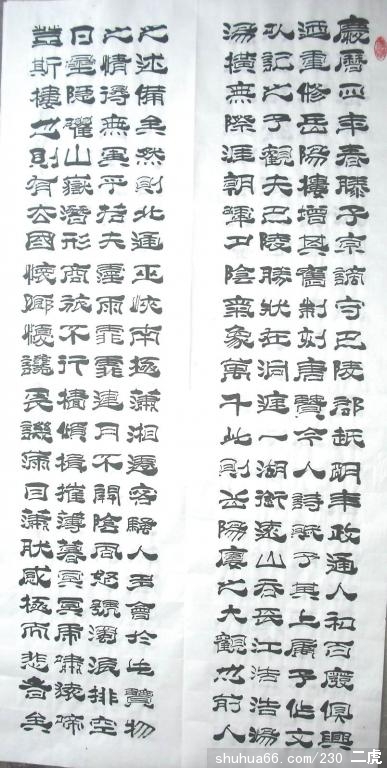 慶曆四年春滕子京謫守巴陵郡越明年政通人和百廢俱興
迺重修岳陽樓增其舊制刻唐賢今人詩賦于其上屬予作文
以記之予觀夫巴陵勝狀在洞庭一湖銜遠山吞長江浩浩湯
湯橫無際涯朝暉夕陰氣象萬千此則岳陽樓之大觀也前人
之述備矣然則北通巫峽南極瀟湘遷客騷人多會於此覽物
之情得無異乎若夫霪雨霏霏連月不開陰風怒號濁浪排空
日星隱耀山嶽潛形商旅不行檣傾楫摧薄暮冥冥虎嘯猿啼
登斯樓也則有去國懷鄉憂讒畏譏滿目蕭然感極而悲者矣
shuhua66.com/230 二虎